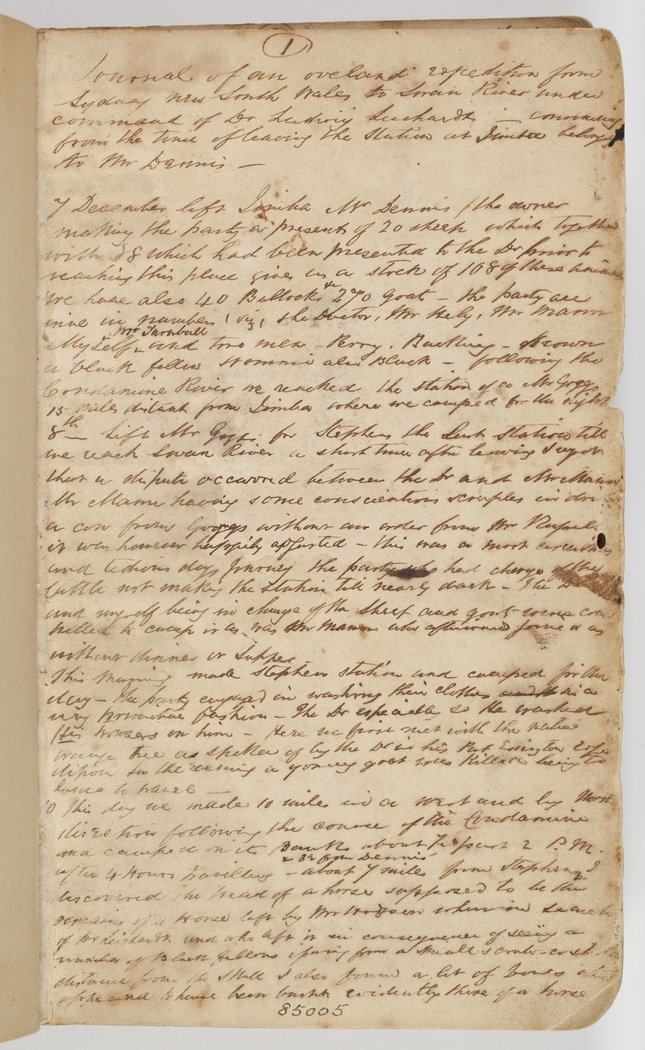 1
Journal of an overland expedition from
Sydney New South Wales to Swan River under
command of Dr Ludwig Leichardt — commencing
from the time of leaving the station at Jimba belong
to Mr Dennis —
7 December left Jimba Mr Dennis / the owner
making the party a present of 20 sheep which together
with 88 which had been presented to the Dr prior to
reaching this place gives us a stock of 108 of these
We have also 40 Bullocks & 270 Goats — the party are
nine in number, viz, the Doctor, Mr Hely, Mr Mann
Mr Turnbull
Myself and two men - Perry, Bunking - Brown
a black fellow also Black — following the
Condamine River we reached the station of
15 miles distant from Jimba where we camped for the night
8th Left Mr for Stephens the Last Station till
we reach Swan River a short time after leaving
that a dispute occurred between the Dr and Mr Mann
Mr Mann having some conscientious scruples
a cow from without an order from Mr
it was however happily adjusted — this was a most
and tedious days Journey the party who had charge of the
Cattle not making the station till nearly dark — The Dr
and myself being in charge of the sheep and goats were com
pelled to camp as was Mr Mann who afterwards joined us
without dinner or supper
This Morning made Stephens station and camped for the
day — the party engaged in washing their clothes
very primitive fashion — The Dr especially so He washed
His trowsers on him — Here we first met with the native
orange tree as spoken of by the Dr in his Port Essington Expe
dition in the evening a young goat was killed being
to travel —
10 This day we made 10 miles in a west and by North
direction following the course of the Condamine
and camped on its Banks about 1/2 past 2 P.M.
& 32 from Dennis'
after 4 Hours travelling — about 7 miles from Stephens I
discovered the Head of a horse supposed to be the
remains of a Horse left by Mr when in search
of Dr Leichardt and who left it in consequence of seeing a
number of Black fellows from a small scrub
distance from the skull I also found a lot of bones
to have been burnt evidently those of a horse
85005